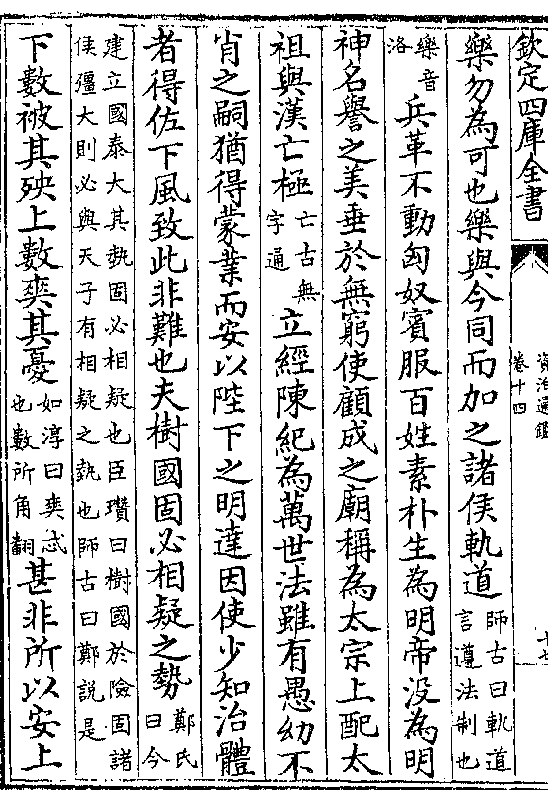 欽定四庫全書
資治通鑑
卷十四
十七
樂勿為可也樂與今同而加之諸侯軌道師古曰軌道言遵法制也
樂音洛兵革不動匈奴賓服百姓素朴生為明帝没為明
神名譽之美垂於無窮使顧成之廟稱為太宗上配太
祖與漢亡極亡古無字通立經陳紀為萬世法雖有愚幼不
肖之嗣猶得蒙業而安以陛下之明達因使少知治體
者得佐下風致此非難也夫樹國固必相疑之勢鄭氏曰今
建立國泰大其埶固必相疑也臣瓚曰樹國於險固諸
侯彊大則必與天子有相疑之埶也師古曰鄭説是
下數被其殃上數爽其憂如淳曰爽忒也數所角翻甚非所以安上